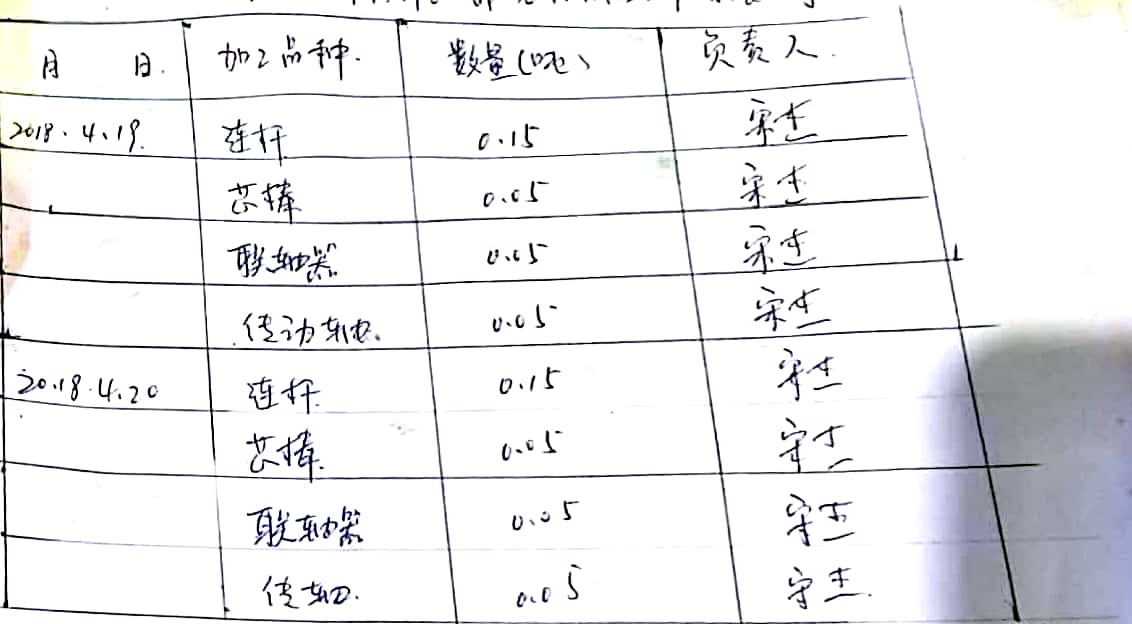 月 日. 加工品种. 数量(吨) 负责人.
2018.4.19. 连杆 0.15 宋杰
芯棒 0.05 宋杰
联轴器 0.05 宋杰
传动轴. 0.05 宋杰
2018.4.20 连杆 0.15 宋杰
芯棒. 0.05 宋杰
联轴器 0.05 宋杰
传轴. 0.05 宋杰.